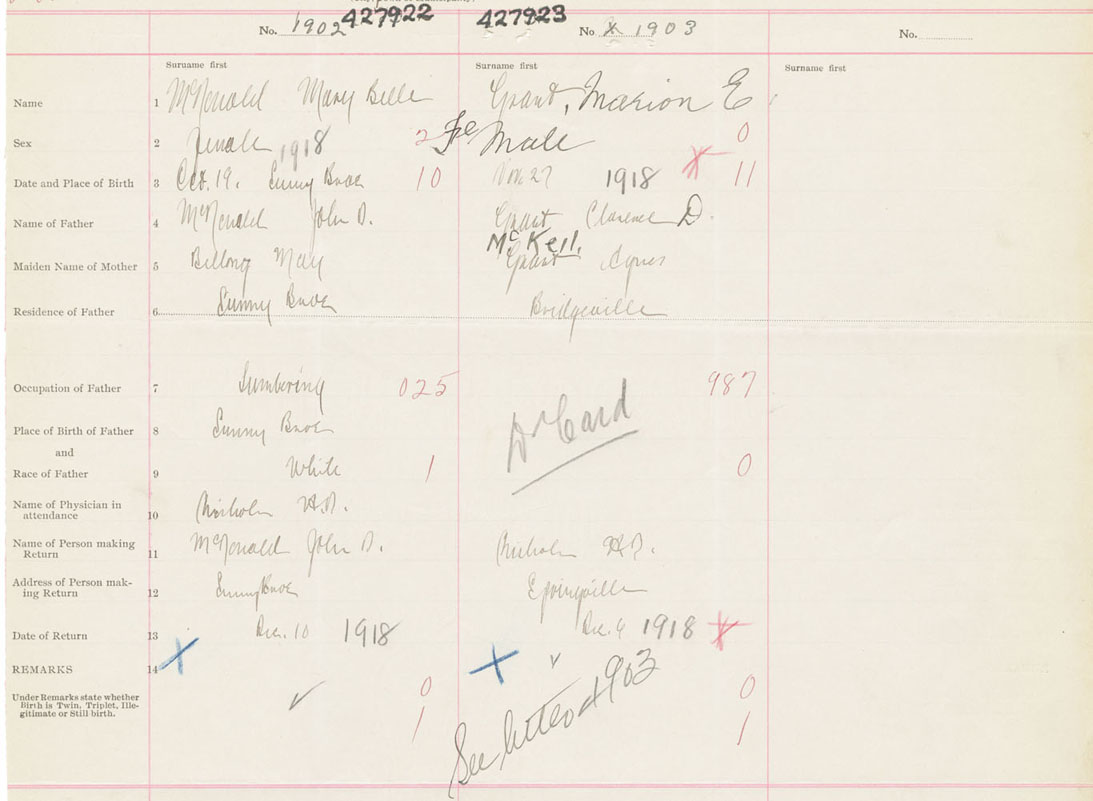 No. 1902 427922 427923 No X 1903 No.
Surname first Surname first Surname first
Name 1 McDonald Mary Belle Grant, Marion E
Sex 2 Female 1918 2 Fe Male 0
Date and Place of Birth 3 Oct. 19. Sunny Brae 10 Nov 27 1918 X 11
Name of Father 4 McDonald John D. Grant Clarence D.
McKell.
Maiden Name of Mother 5 May Grant Agnes
Residence of Father 6 Sunny Brae Bridgeville
Occupation of Father 7 Lumbering 025 987
Dr Card
Place of Birth of Father 8 Sunny Brae
and
Race of Father 9 White 1 0
Name of Physician in
attendance 10 H.D.
Name of Person making
Return 11 McDonald John D. H.D.
Address of Person mak-
ing Return 12 Sunny Brae
Date of Return 13 Dec. 10 1918 Dec. 9 1918 X
REMARKS 14 X X
Under Remarks state whether
Birth is Twin, Triplet, Ille-
gitimate or Still birth.
0 0
1 1
See letter 1903